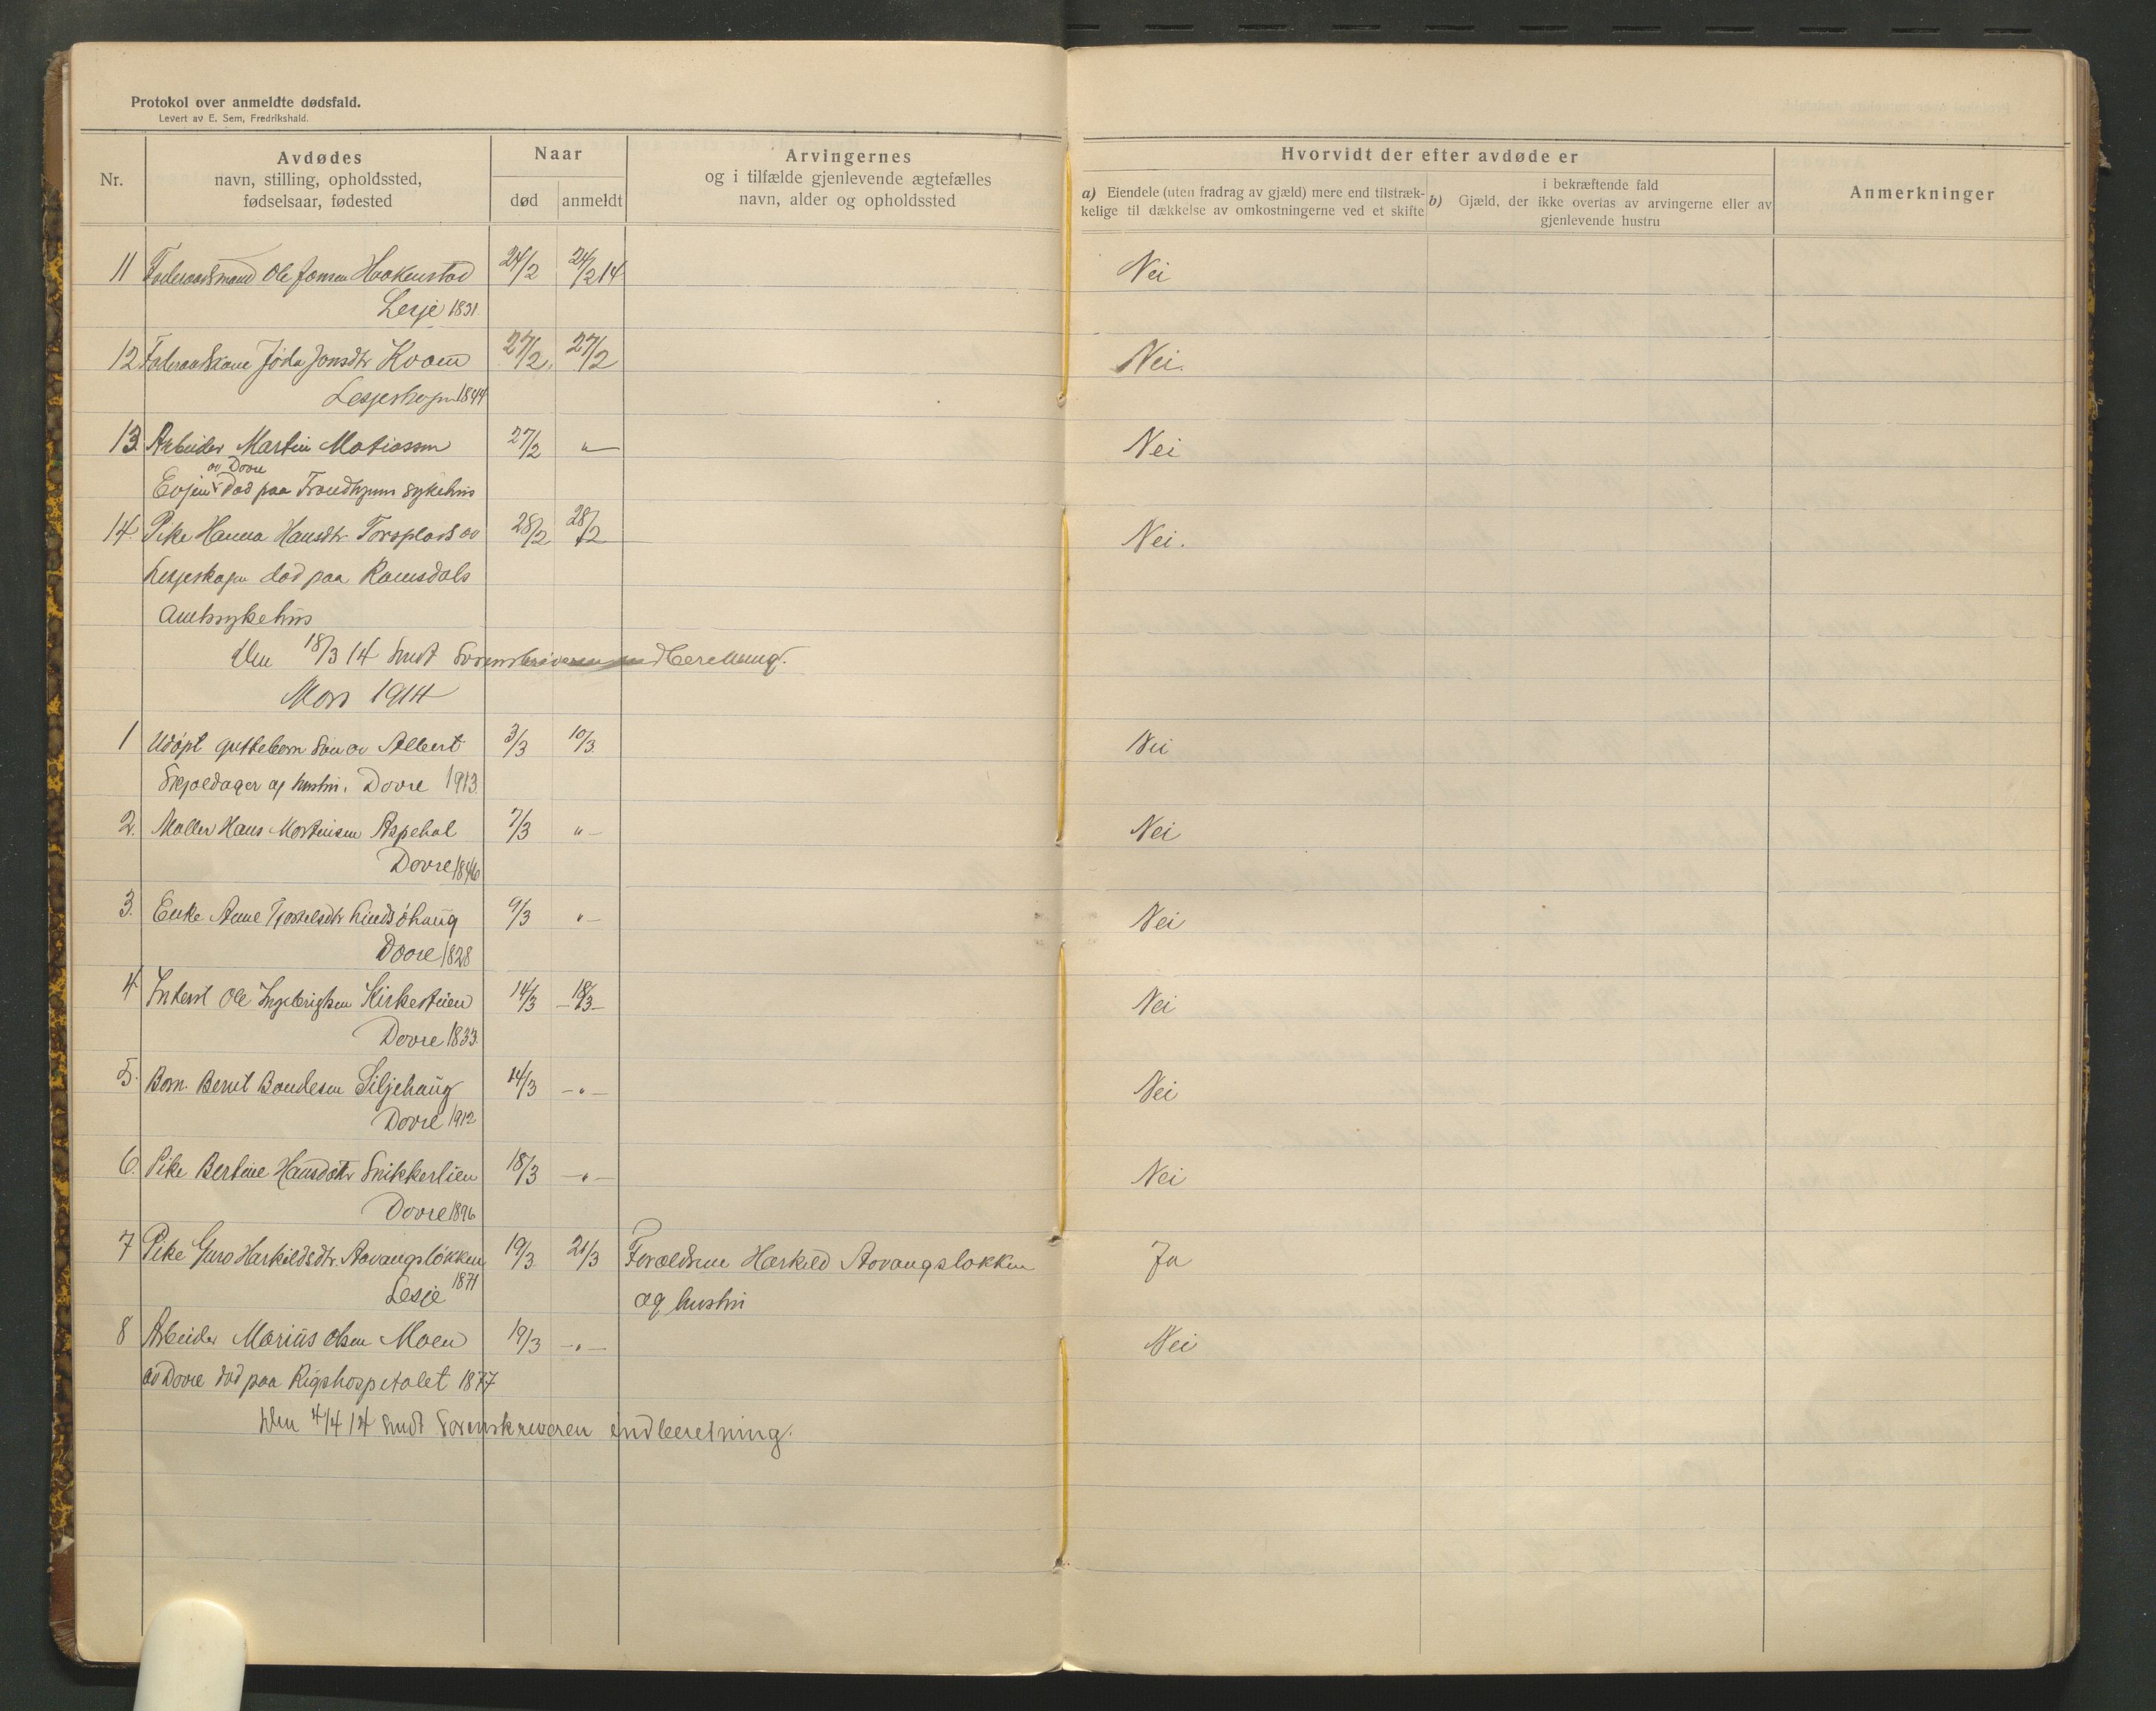 Protokol over anmeldte dødsfald.
Levert av E. Sem, Fredrikshald.
Nr.
Avdødes
navn, stilling, opholdssted,
fødselsaar, fødested
Naar
død
anmeldt
Arvingernes
og i tilfælde gjenlevende ægtefælles
navn, alder og opholdssted
Hvorvidt der efter avdøde er
a) Eiendele (uten fradrag av gjæld) mere end tilstræk-
kelige til dækkelse av omkostningerne ved et skifte
i bekræftende fald
b) Gjæld, der ikke overtas av arvingerne eller av
gjenlevende hustru
Anmerkninger
11 Foderaadsmand Ole Jonsen Haakenstad 24/2 24/2 14 Nei
Lesje 1831.
12 Foderaadskone Jøda Jonsdtr Kvam 27/2 27/2 Nei.
Lesjeskogn 1844
13. Arbeider Martin Matiassen 27/2 " Nei
av Dovre
Evjen død paa Trondhjems sykehus
14. Pike Hanna Hansdtr Torsplads av 28/2 28/2 Nei.
Lesjeskogn død paa Romsdals
Amtssykehus
Den 18/3 14 sendt Sorenskriveren indberetning.
Mars 1914
1 Udøpt guttebarn søn av Albert 3/3 10/3 Nei
Skjoldager og hustru. Dovre 1913.
2. Møller Hans Mortensen Aspehol 7/3 " Nei
Dovre 1846
3. Enke Anne Tjostelsdtr Lindsøhaug 9/3 " Nei
Dovre 1828
4. Inderst Ole Ingebrigtsen Kirkestuen 14/3 18/3 Nei
Dovre 1833.
5. Barn. Bernt Bondesen Siljehaug 14/3 -"- Nei
Dovre 1912
6. Pike Bertine Hansdatr Snikkerlien 18/3 -"- Nei
Dovre 1896
7 Pike Guro Harkildsdtr. Aavangsløkken 19/3 21/3 Forældrene Harkild Aavangsløkken Ja
Lesje 1871 og hustru
8 Arbeider Marius Olsen Moen 19/3 -"- Nei
av Dovre død paa Rigshospitalet 1877
Den 4/4 14 sendt Sorenskriveren indberetning.